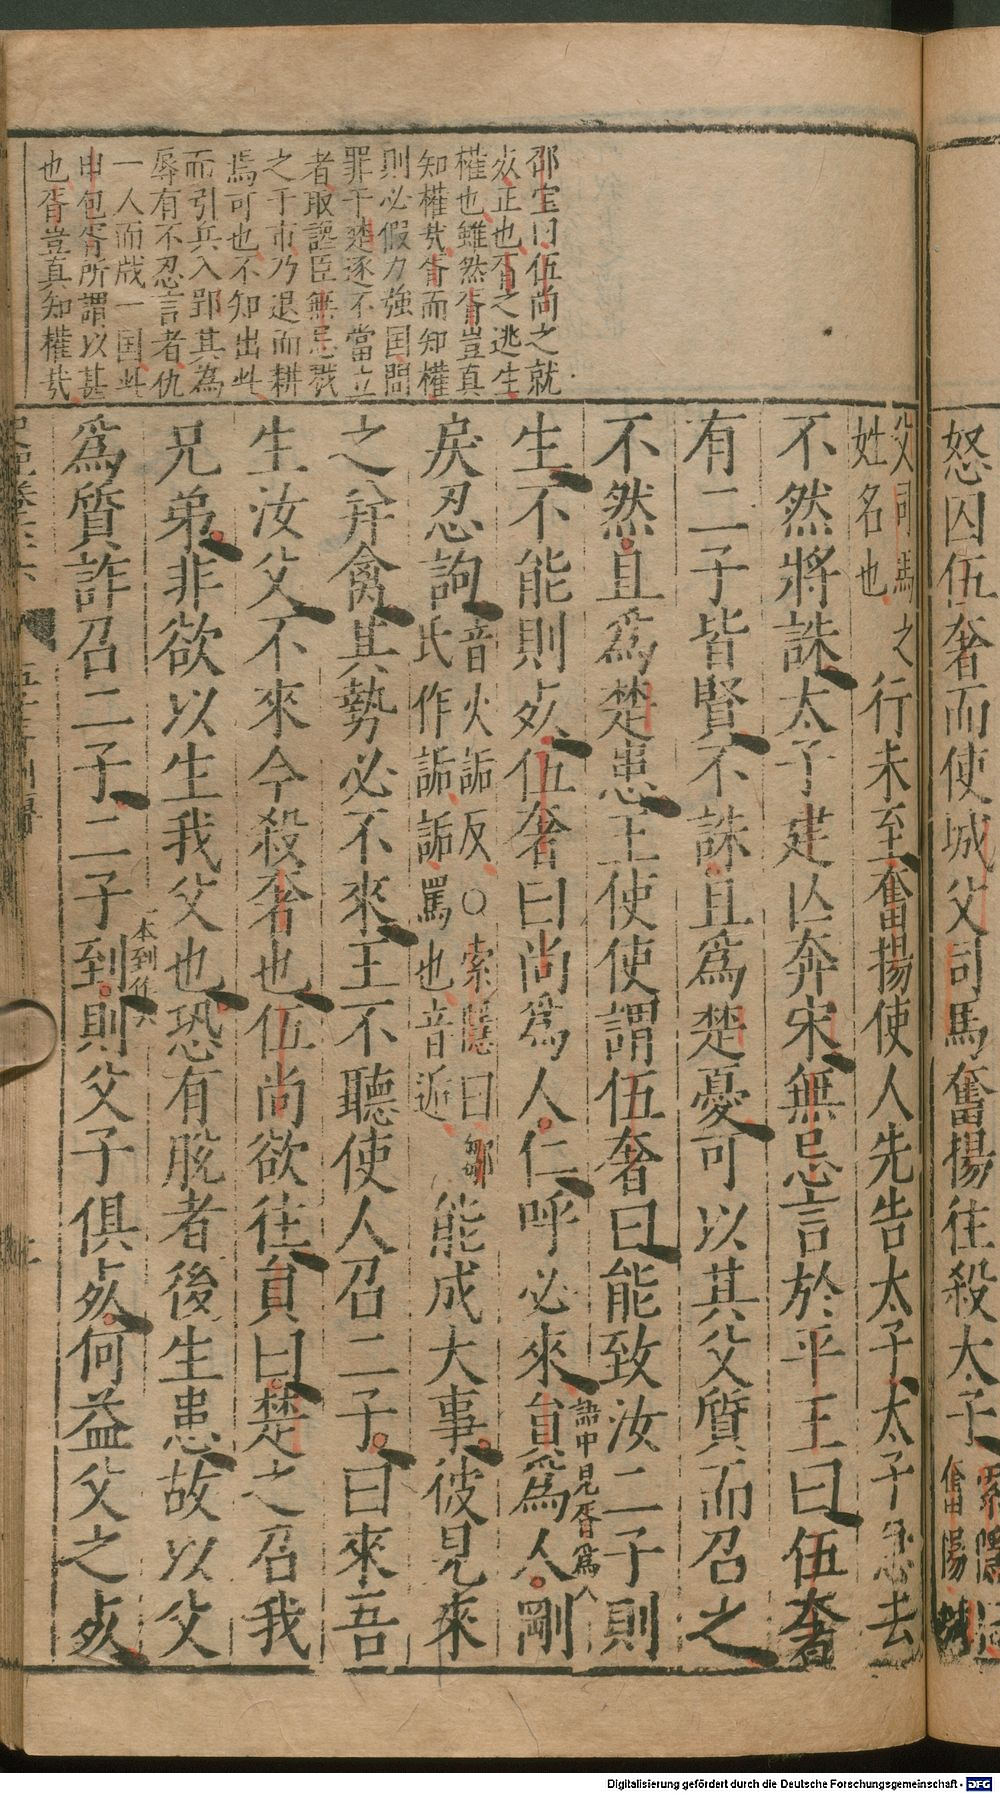 怒囚伍奢而使城父司馬奮揚往殺太子
父司馬
姓名也
之行未至奮揚使人先告太子太子急去
不然將誅太子建亡奔宋無忌言於平王曰伍奢
有二子皆賢不誅且為楚憂可以其父質而召之
不然且為楚患王使使謂伍奢曰能致汝二子則
生不能則死伍奢曰尚為人仁呼必來員為人剛
語中見胥為人
戾忍訽
音火詬反○索隱曰鄒
氏作詬詬罵也音近
能成大事彼見來
之并禽其勢必不來王不聽使人召二子曰來吾
生汝父不來今殺奢也伍尚欲往員曰楚之召我
兄弟非欲以生我父也恐有脫者後生患故以父
一本到作
為質詐召二子二子到則父子俱死何益父之死
邵宝曰伍尚之就
死正也胥之逃生
權也雖然胥豈真
知權㢤胥而知權
則必假力強国問
罪于楚逐不當立
者取讒臣無忌戮
之于市乃退而耕
焉可也不知出此
而引兵入郢其為
辱有不忍言者仇
一人而戕一国此
申包胥所謂以甚
也胥豈真知權㢤
Digitalisierung gefördert durch die Deutsche Forschungsgemeinschaft - DFG